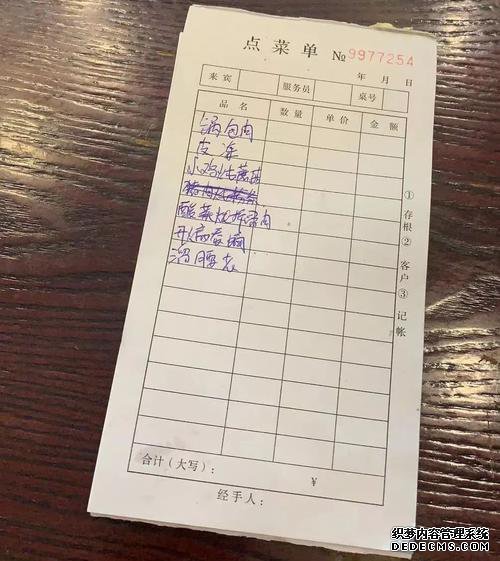 点菜单 № 9977254
年 月 日
来宾 服务员 桌号
品名 数量 单价 金额
锅包肉
皮冻
小鸡炖蘑菇
酸菜
溜腰花
①存根②客户③记帐
合计(大写): ¥
经手人:
织梦内容管理系统
DEDECMS.COM